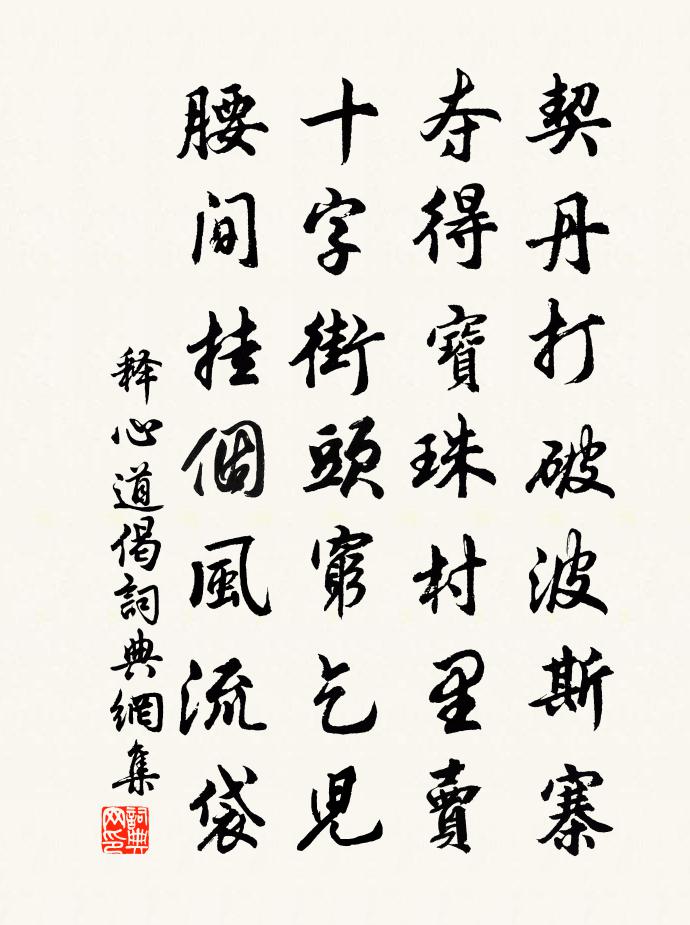 契丹打破波斯寨
夺得寶珠村里賣
十字街頭窮乞児
腰间挂個風流袋
释心道偈詞典網集
詞典
网印